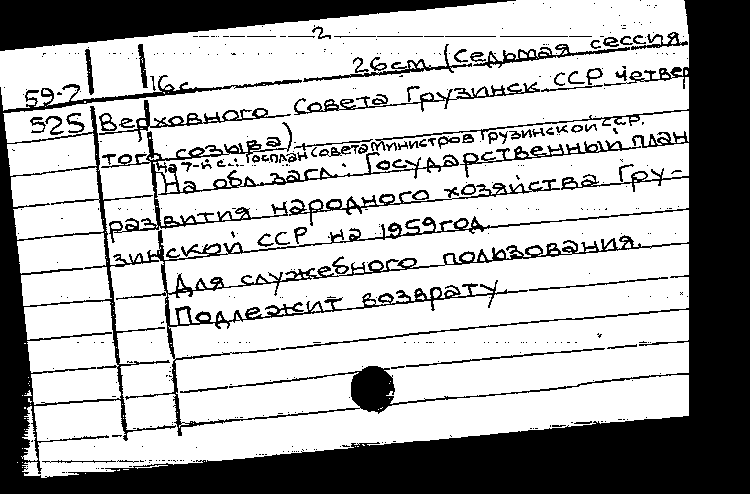 2
59-7 16 с. 26см (Седьмая сессия
525 Верховного Совета Грузинск ССР четвер
того созыва)
На 7-й с.: Госплан Совета Министров Грузинской ССР.
На обл. загл.: Государственный план
развития народного хозяйства Гру-
зинской ССР на 1959 год.
Для служебного пользования.
Подлежит возврату.